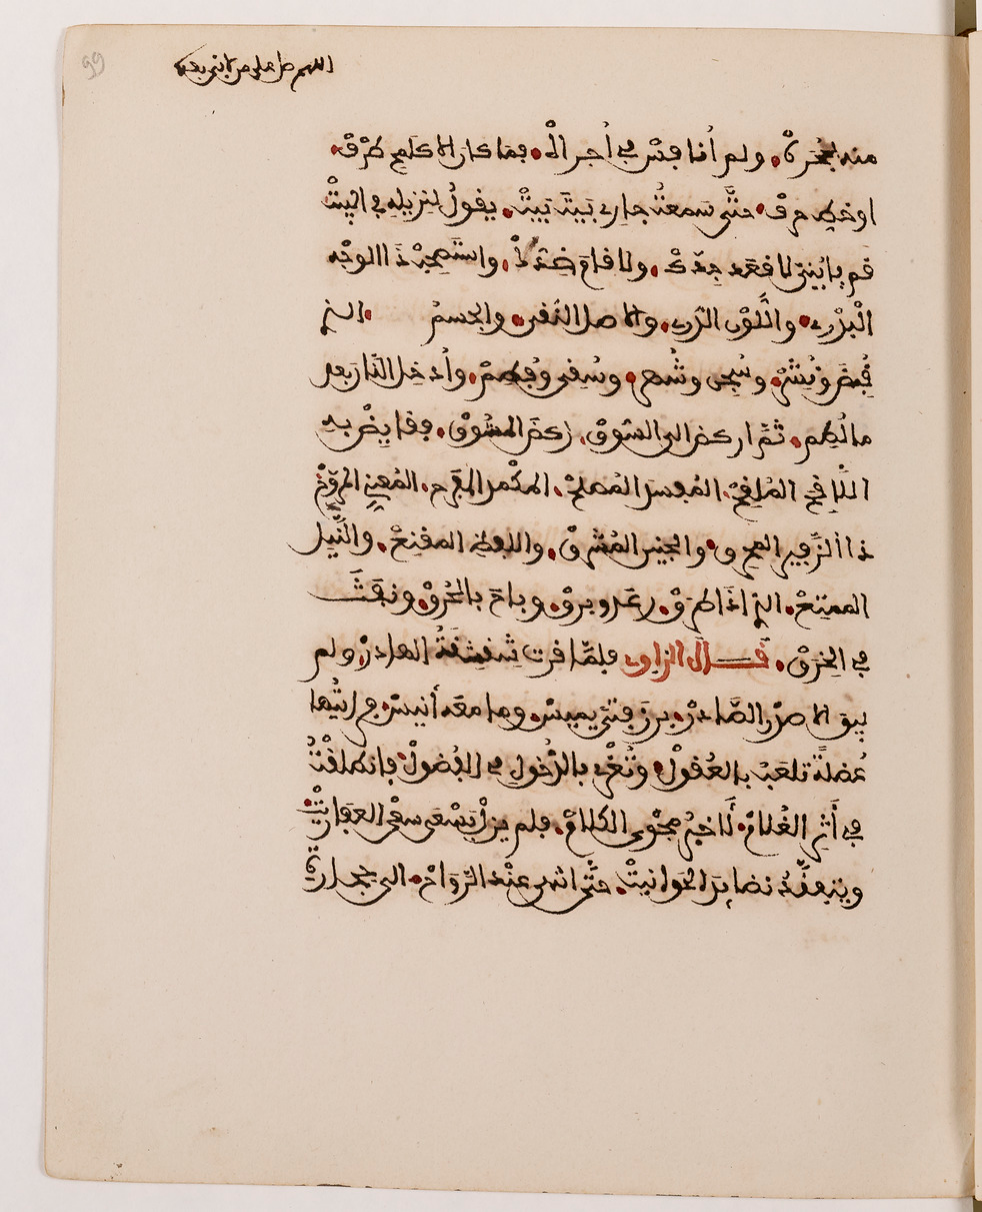 اللهم صل على من لا نبي بعده
منه بحُجْرَةْ. ولم أُنافِسْ في أُجرةْ. فما كان إلا كلمح طرْفْ.
او خط حرفْ. حتَّى سمعتُ جاري بَيْتَ بَيْتْ. يقولُ لنزيله في البيتْ
قم يا بُنيّ لا قعَد جدّكْ. ولا قامَ ضدّكْ. واستَصحِبْ ذا الوجْه
الْبَدْري. واللَّوْن الدّري. والاصل النّقي. والجسم. الذي
قُبِضَ ونُشِرْ. وسُجن وشُهر. وسُقي وفُطمْ. وأُدخل النار بعد
ما لُطم. ثمَّ اركض الى السّوقْ. ركضَ المشُوقْ. فقايِضْ به
اللَّاقح المُلقحْ. المُفسد المُصلحْ. المكْمد المفرح. المُعني المروّحْ
ذا الزَّفير المحرق. والجنين المُشرقْ. واللفظ المقنعْ. والنَّيل
الممتعْ. الذي اذا طرقْ. رعَد وبرقْ. وباحَ بالحُرقْ. ونفثَ
في الخِرقْ. قَالَ الراوي فلمّا قرت شقشقةُ الهادرْ. ولم
يبق الا صدَر الصَّادرْ. برز فتىً يميسْ. وما معَه أنيسْ. فرايتُها
عُضلةً تلعَبُ بالعُقولْ. وتُغْري بالدّخول في الفُضولْ. فانطلقْتُ
في أَثرِ الغُلامْ. لَأخبُرَ فحْوَى الكلامْ. فلم يزلْ يسْعَى سعْي العفاريتْ.
ويتفقَّدُ نضايدَ الحوانيتْ. حتَّى انتهى عنْد الرّواحْ. الى حجارةِ